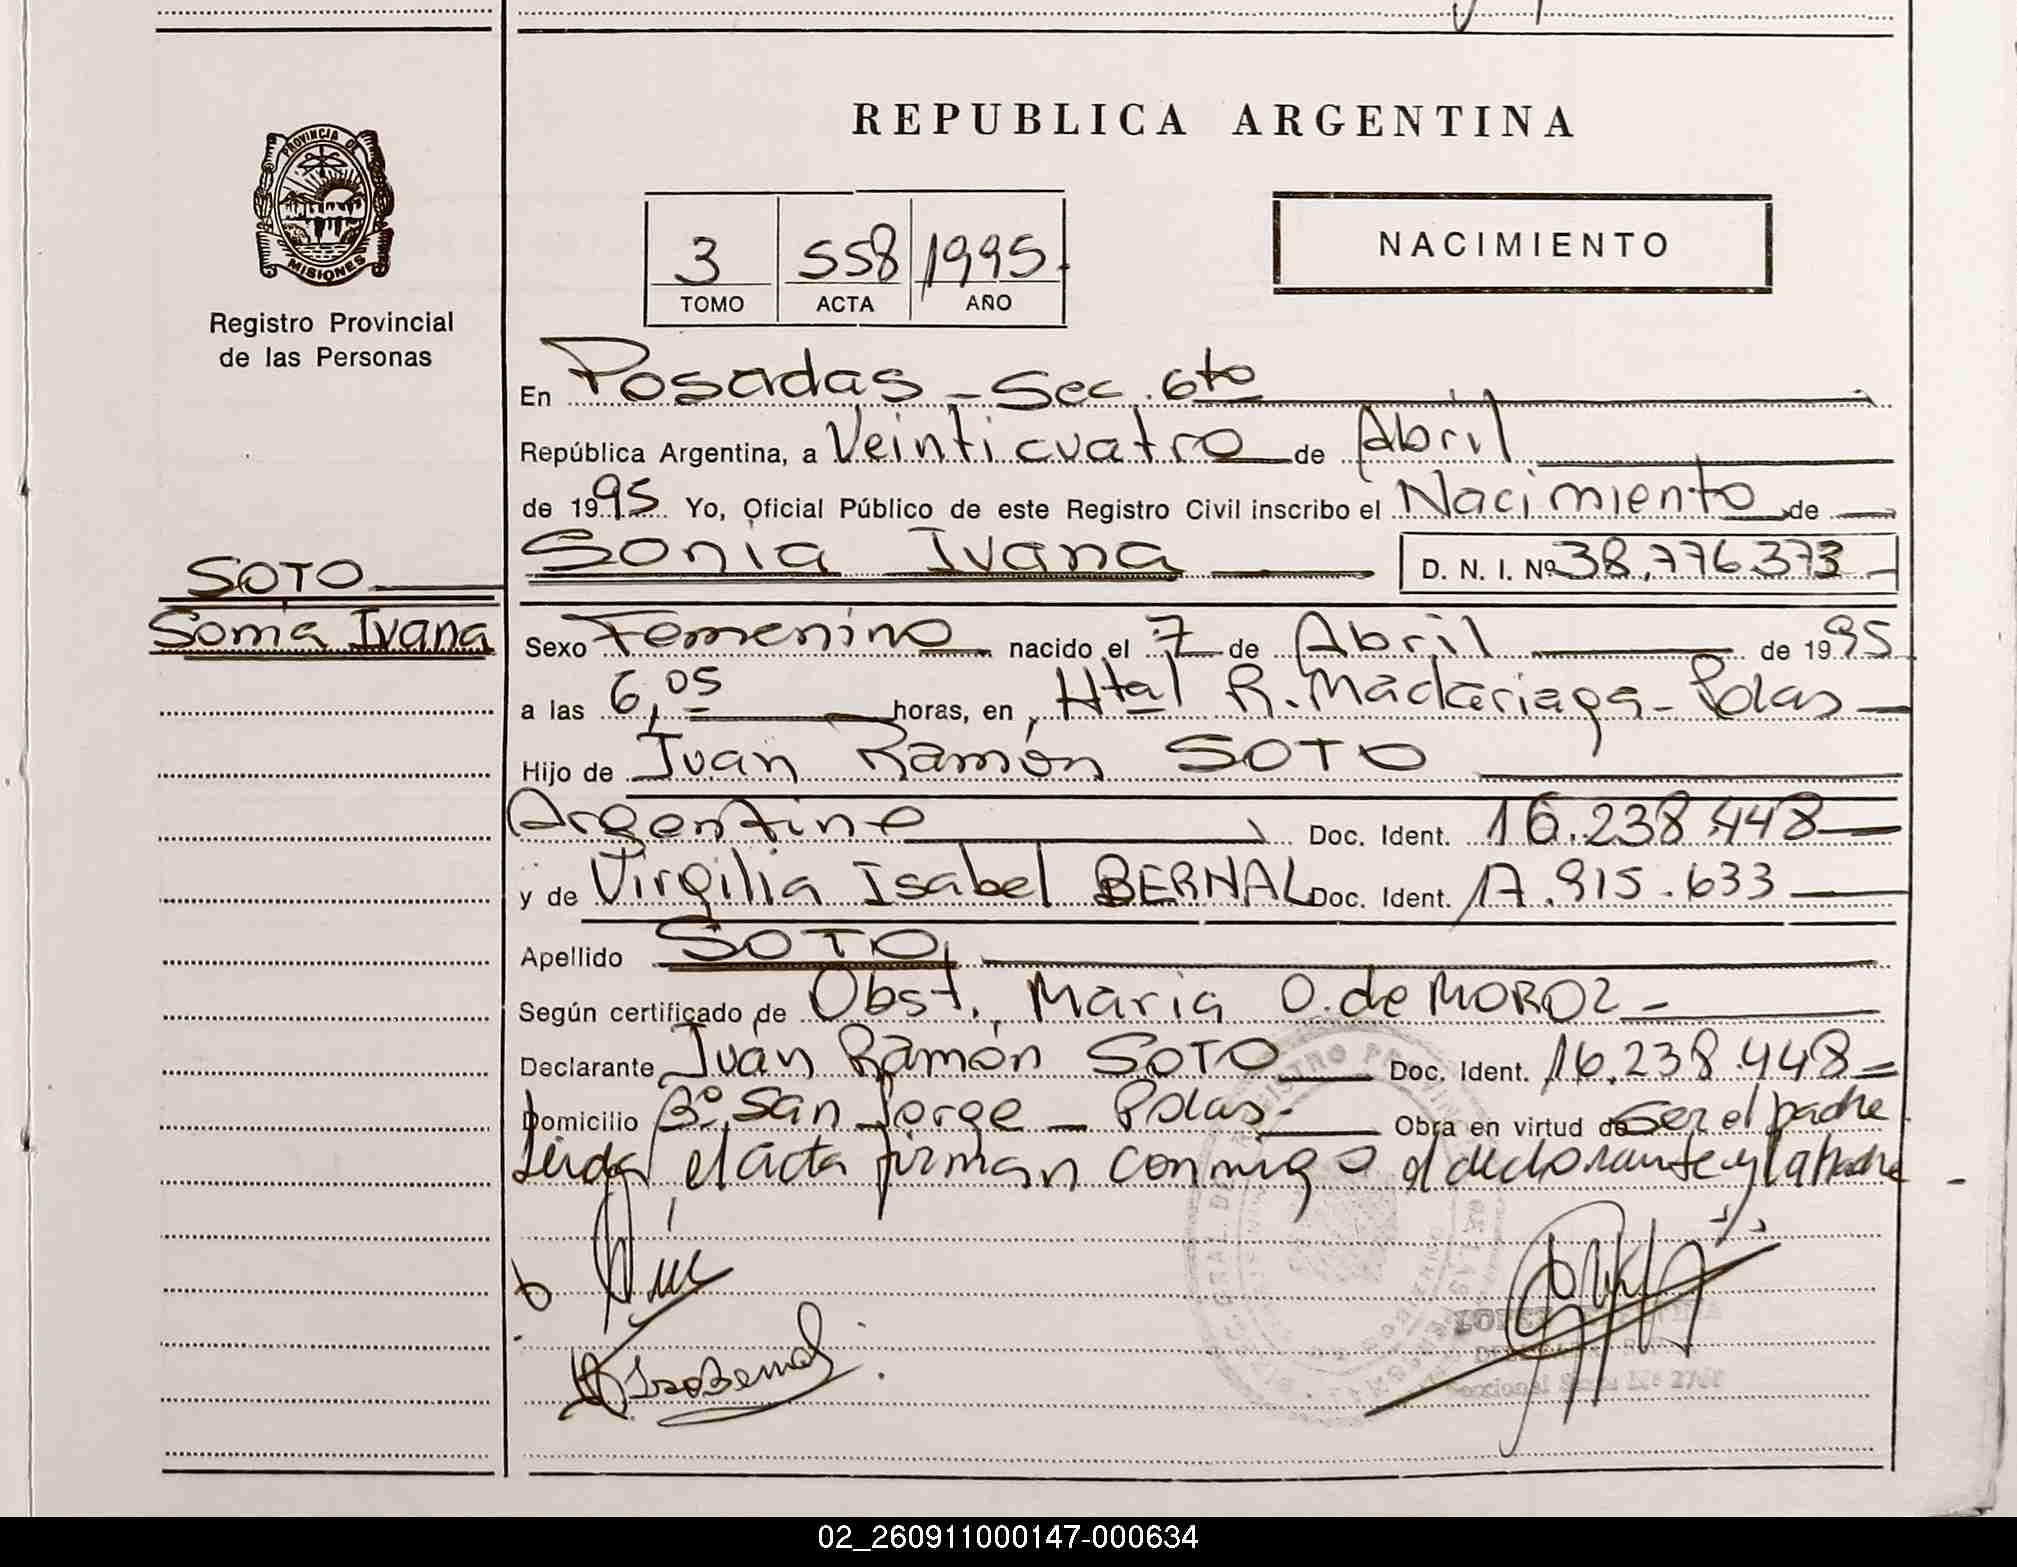 REPUBLICA ARGENTINA
PROVINCIA DE
MISIONES
Registro Provincial
de las Personas
3 558 1995
TOMO ACTA AÑO
NACIMIENTO
En Posadas - Sec. 6to
República Argentina, a Veinticuatro de Abril
de 1995 Yo, Oficial Público de este Registro Civil inscribo el Nacimiento de
SOTO
Sonia Ivana
Sonia Ivana D. N. I. Nº 38.776.373
Sexo Femenino nacido el 7 de Abril de 1995
a las 6,05 horas, en Htal R. Madariaga - Pdas
Hijo de Juan Ramón SOTO
Argentino Doc. Ident. 16.238.448
y de Virgilia Isabel BERNAL Doc. Ident. 17.915.633
Apellido SOTO
Según certificado de Obst. Maria O. de MOROZ -
Declarante Juan Ramón SOTO Doc. Ident. 16.238.448
Domicilio Bº San Jorge - Pdas. Obra en virtud de ser el padre
Leida el acta firman conmigo el declarante y la Madre -
02_260911000147-000634